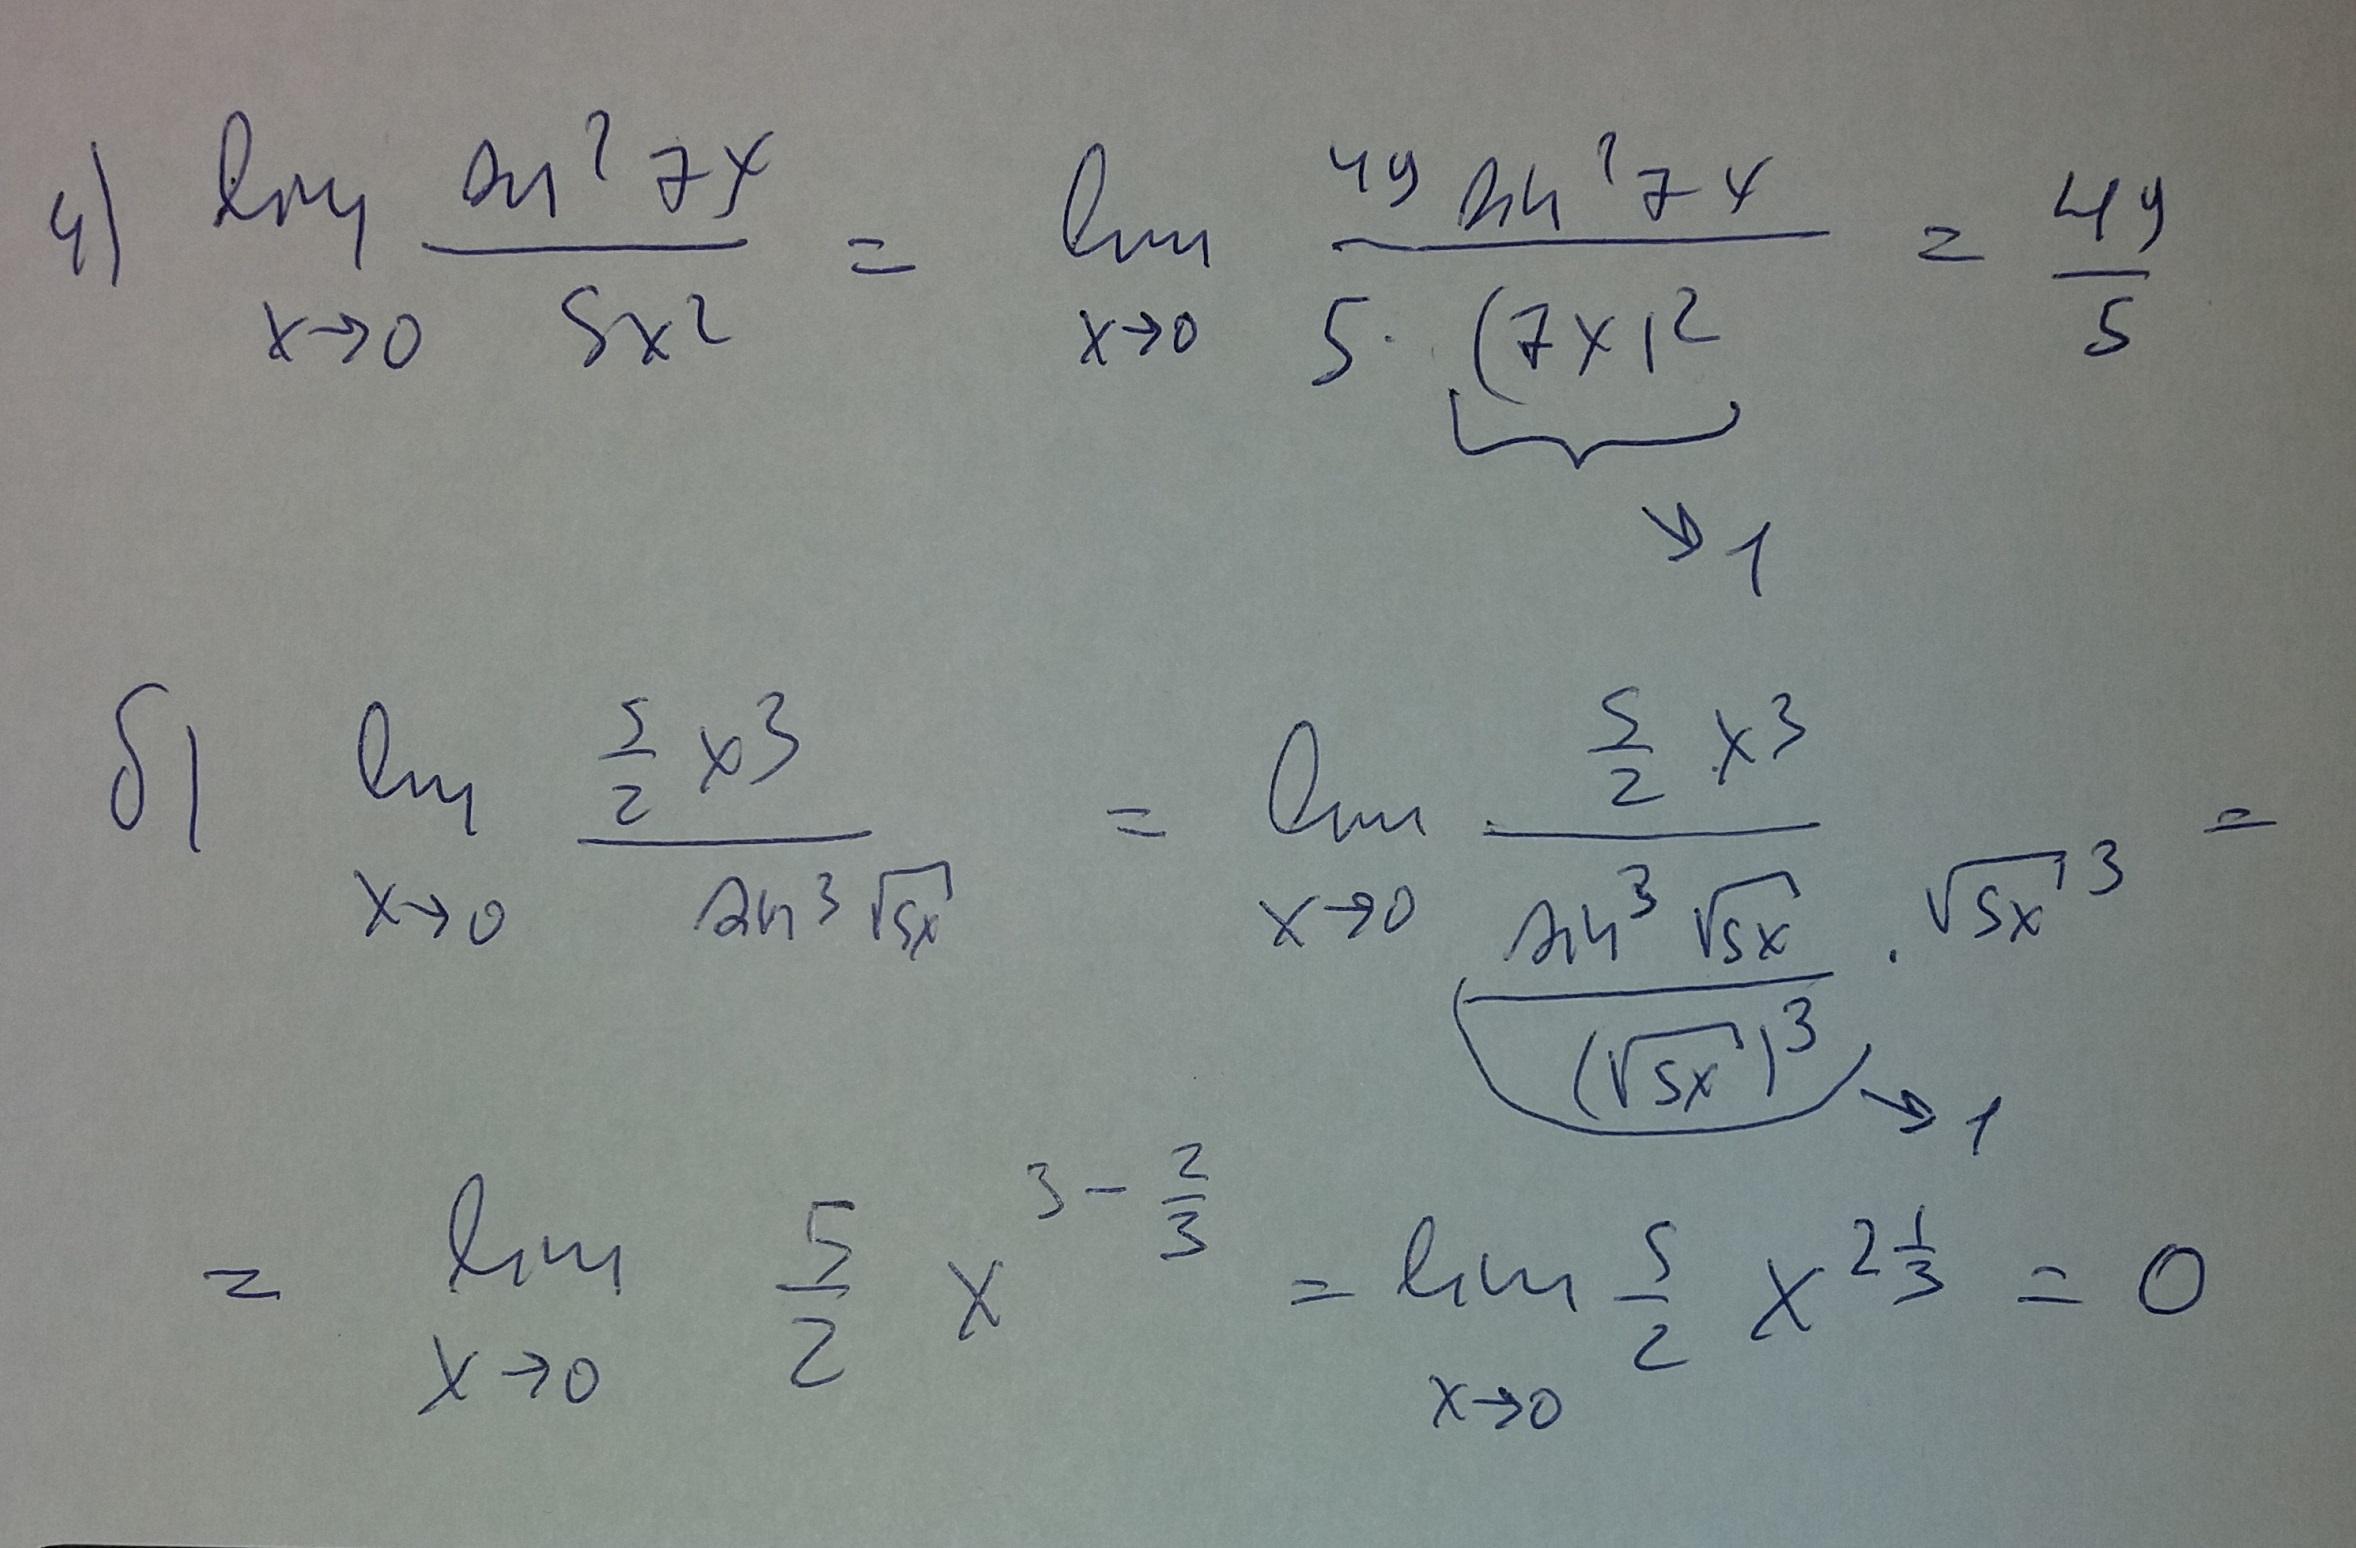 4) lim x→0 sin² 7x / 5x² = lim x→0 49 sin² 7x / 5·(7x)² = 49/5
→ 1
б) lim x→0 5/2 x³ / sin³ √5x = lim x→0 5/2 x³ / (sin³ √5x / (√5x)³ · √5x³) =
→ 1
= lim x→0 5/2 x^(3 - 2/3) = lim x→0 5/2 x^(2 1/3) = 0